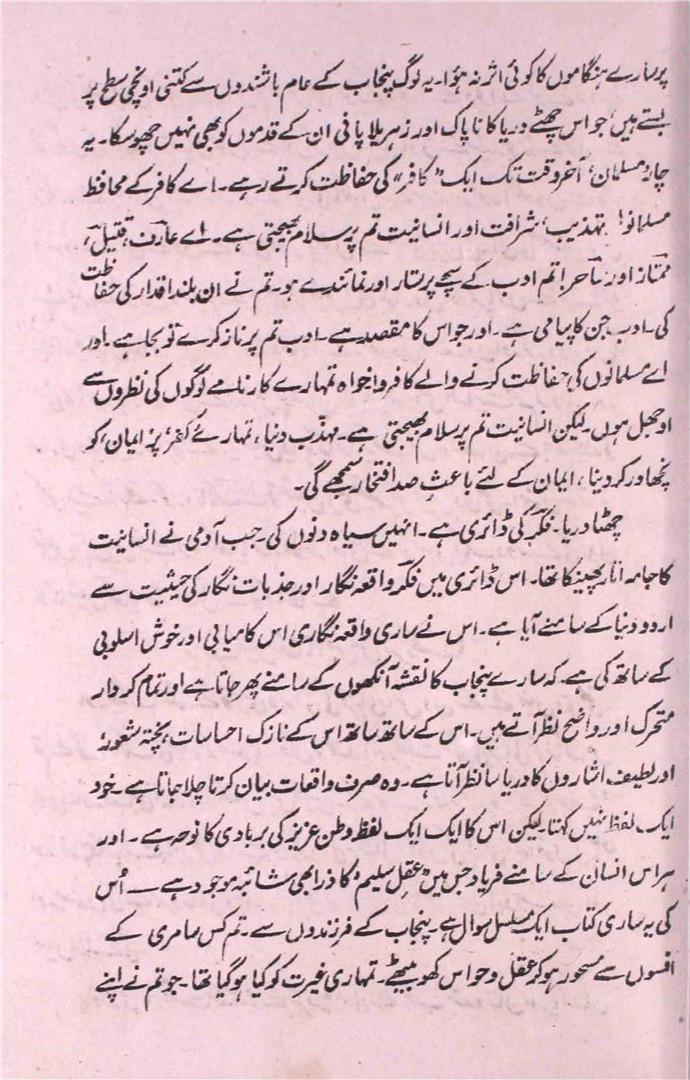 پر سارے ہنگاموں کا کوئی اثر نہ ہؤا۔ یہ لوگ پنجاب کے عام باشندوں سے کتنی اونچی سطح پر
بستے ہیں، جو اس چھٹے دریا کا ناپاک اور زہریلا پانی ان کے قدموں کو بھی نہیں چھو سکا۔ یہ
چار ”مسلمان“ آخر وقت تک ایک ”کافر“ کی حفاظت کرتے رہے۔ اے کافر کے محافظ
مسلمانو! تہذیب، شرافت اور انسانیت تم پر سلام بھیجتی ہے۔ اے عارف، قتیل،
ممتاز اور ساحر! تم ادب کے سچے پرستار اور نمائندے ہو۔ تم نے ان بلند اقدار کی حفاظت
کی۔ ادب جن کا پیامی ہے۔ اور جو اس کا مقصد ہے۔ ادب تم پر ناز کرے تو بجا ہے۔ اور
اے مسلمانوں کی حفاظت کرنے والے کافرو! خواہ تمہارے کارنامے لوگوں کی نظروں سے
اوجھل ہوں۔ لیکن انسانیت تم پر سلام بھیجتی ہے۔ مہذب دنیا، تمہارے ’کفر‘ پر ’ایمان‘ کو
نچھاور کر دینا، ایمان کے لئے باعثِ صد افتخار سمجھے گی۔
چھٹا دریا۔ فکر کی ڈائری ہے۔ انہیں سیاہ دنوں کی۔ جب آدمی نے انسانیت
کا جامہ اتار پھینکا تھا۔ اس ڈائری میں فکر واقعہ نگار اور جذبات نگار کی حیثیت سے
اردو دنیا کے سامنے آیا ہے۔ اس نے ساری واقعہ نگاری اس کامیابی اور خوش اسلوبی
کے ساتھ کی ہے۔ کہ سارے پنجاب کا نقشہ آنکھوں کے سامنے پھر جاتا ہے اور تمام کردار
متحرک اور واضح نظر آتے ہیں۔ اس کے ساتھ ساتھ اس کے نازک احساسات، پختہ شعور
اور لطیف اشاروں کا دریا سا نظر آتا ہے۔ وہ صرف واقعات بیان کرتا چلا جاتا ہے۔ خود
ایک لفظ نہیں کہتا۔ لیکن اس کا ایک ایک لفظ وطن عزیز کی بربادی کا نوحہ ہے۔ اور
ہر اس انسان کے سامنے فریاد جس میں ”عقل سلیم“ کا ذرا بھی شائبہ موجود ہے — اُس
کی یہ ساری کتاب ایک مسلسل سوال ہے۔ پنجاب کے فرزندوں سے۔ تم کس سامری کے
افسوں سے مسحور ہو کر عقل و حواس کھو بیٹھے۔ تمہاری غیرت کو کیا ہو گیا تھا۔ جو تم نے اپنے